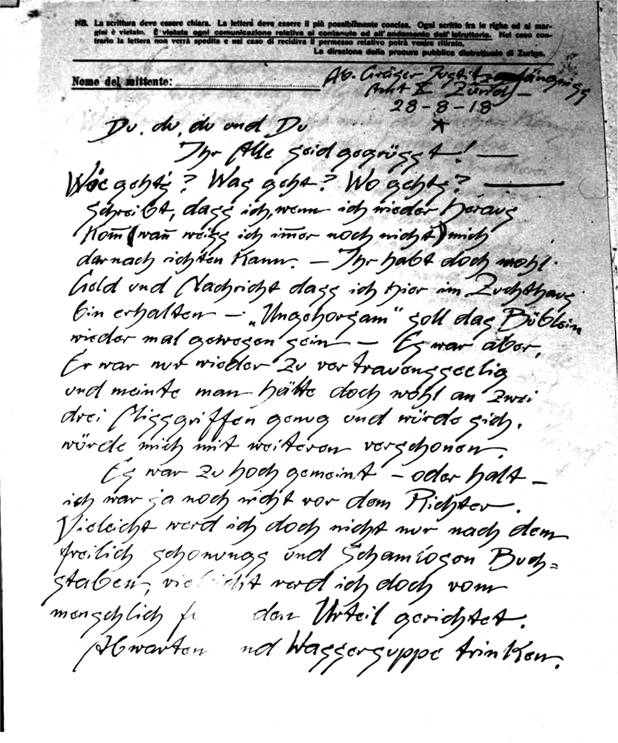 NB. La scrittura deve essere chiara. La lettera deve essere il più possibilmente concisa. Ogni scritto fra le righe ed ai mar-
gini è vietato. È vietata ogni comunicazione relativa al contenuto ed all'andamento dell'istruttoria. Nel caso con-
trario la lettera non verrà spedita e nel caso di recidiva il permesso relativo potrà venire ritirato.
La direzione della procura pubblica distrettuale di Zurigo.
Nome del mittente:
Ab. Gräser Justitz
Amt Zürich –
28-8-18
Du, du, du und Du
Ihr Alle seid gegrüsst! —
Wie gehts? Was geht? Wo gehts? —
Schreibt, dass ich, wenn ich wieder heraus
kom̄ (wan̄ weiss ich im̄er noch nicht) mich
darnach richten kann. – Ihr habt doch wohl
Geld und Nachricht dass ich hier im Zuchthaus
bin erhalten – „Ungehorsam" soll das Büblein
wieder mal gewesen sein – Es war aber,
Er war nur wieder zu vertrauensseelig
und meinte man hätte doch wohl an zwei
drei Missgriffen genug und würde sich,
würde mich mit weiteren verschonen.
Es war zu hoch gemeint – oder halt –
ich war ja noch nicht vor dem Richter.
Vieleicht werd ich doch nicht nur nach dem
freilich schonungs und schamlosen Buch=
staben, vielleicht werd ich doch vom
menschlich den Urteil gerichtet.
Abwarten nd Wassersuppe trinken.